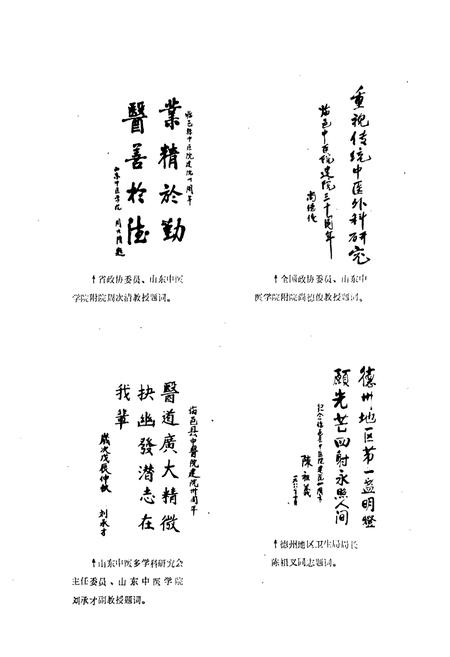 临邑县中医院建院卅周年
業精於勤
醫善於德
山东中医学院
周次清题
↑省政协委员、山东中医
学院附院周次清教授题词。
重视传统中医外科研究
临邑中医院建院三十周年
尚德俊
↑全国政协委员、山东中
医学院附院尚德俊教授题词。
临邑县中醫院建院卅周年
醫道廣大精微
抉幽發潛志在
我輩
歲次戊辰仲秋
刘承才
↑山东中医多学科研究会
主任委员、山东中医学院
刘承才副教授题词。
德州地区第一盏明燈
願光芒四射永照人间
陳祖義
↑德州地区卫生局局长
陈祖义同志题词。